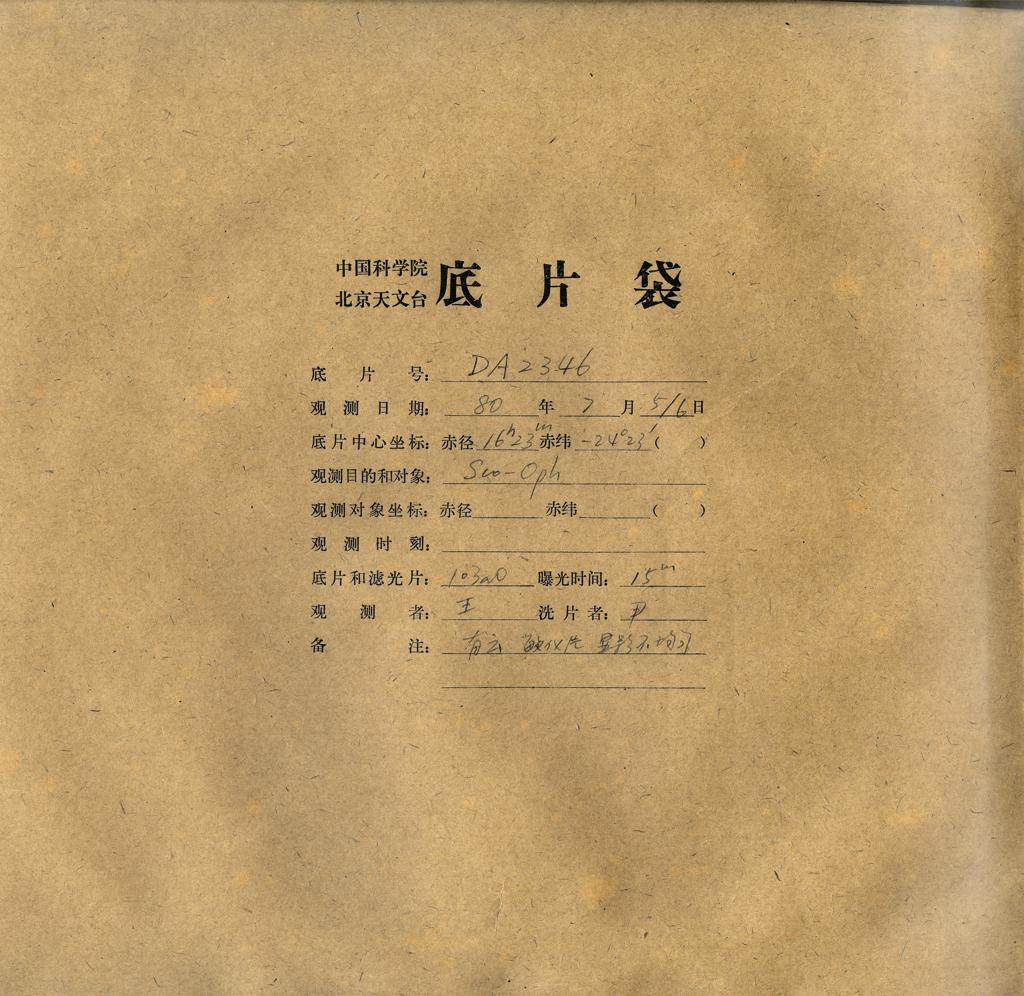 中国科学院
北京天文台
底片袋
底片号: DA2346
观测日期: 80年7月5/6日
底片中心坐标: 赤径 16h23m 赤纬 -24°23′ ( )
观测目的和对象: Sco-Oph
观测对象坐标: 赤径 赤纬 ( )
观测时刻:
底片和滤光片: 103aO 曝光时间: 15m
观测者: 王 洗片者: 尹
备注: 有云 敏化片 显影不均匀